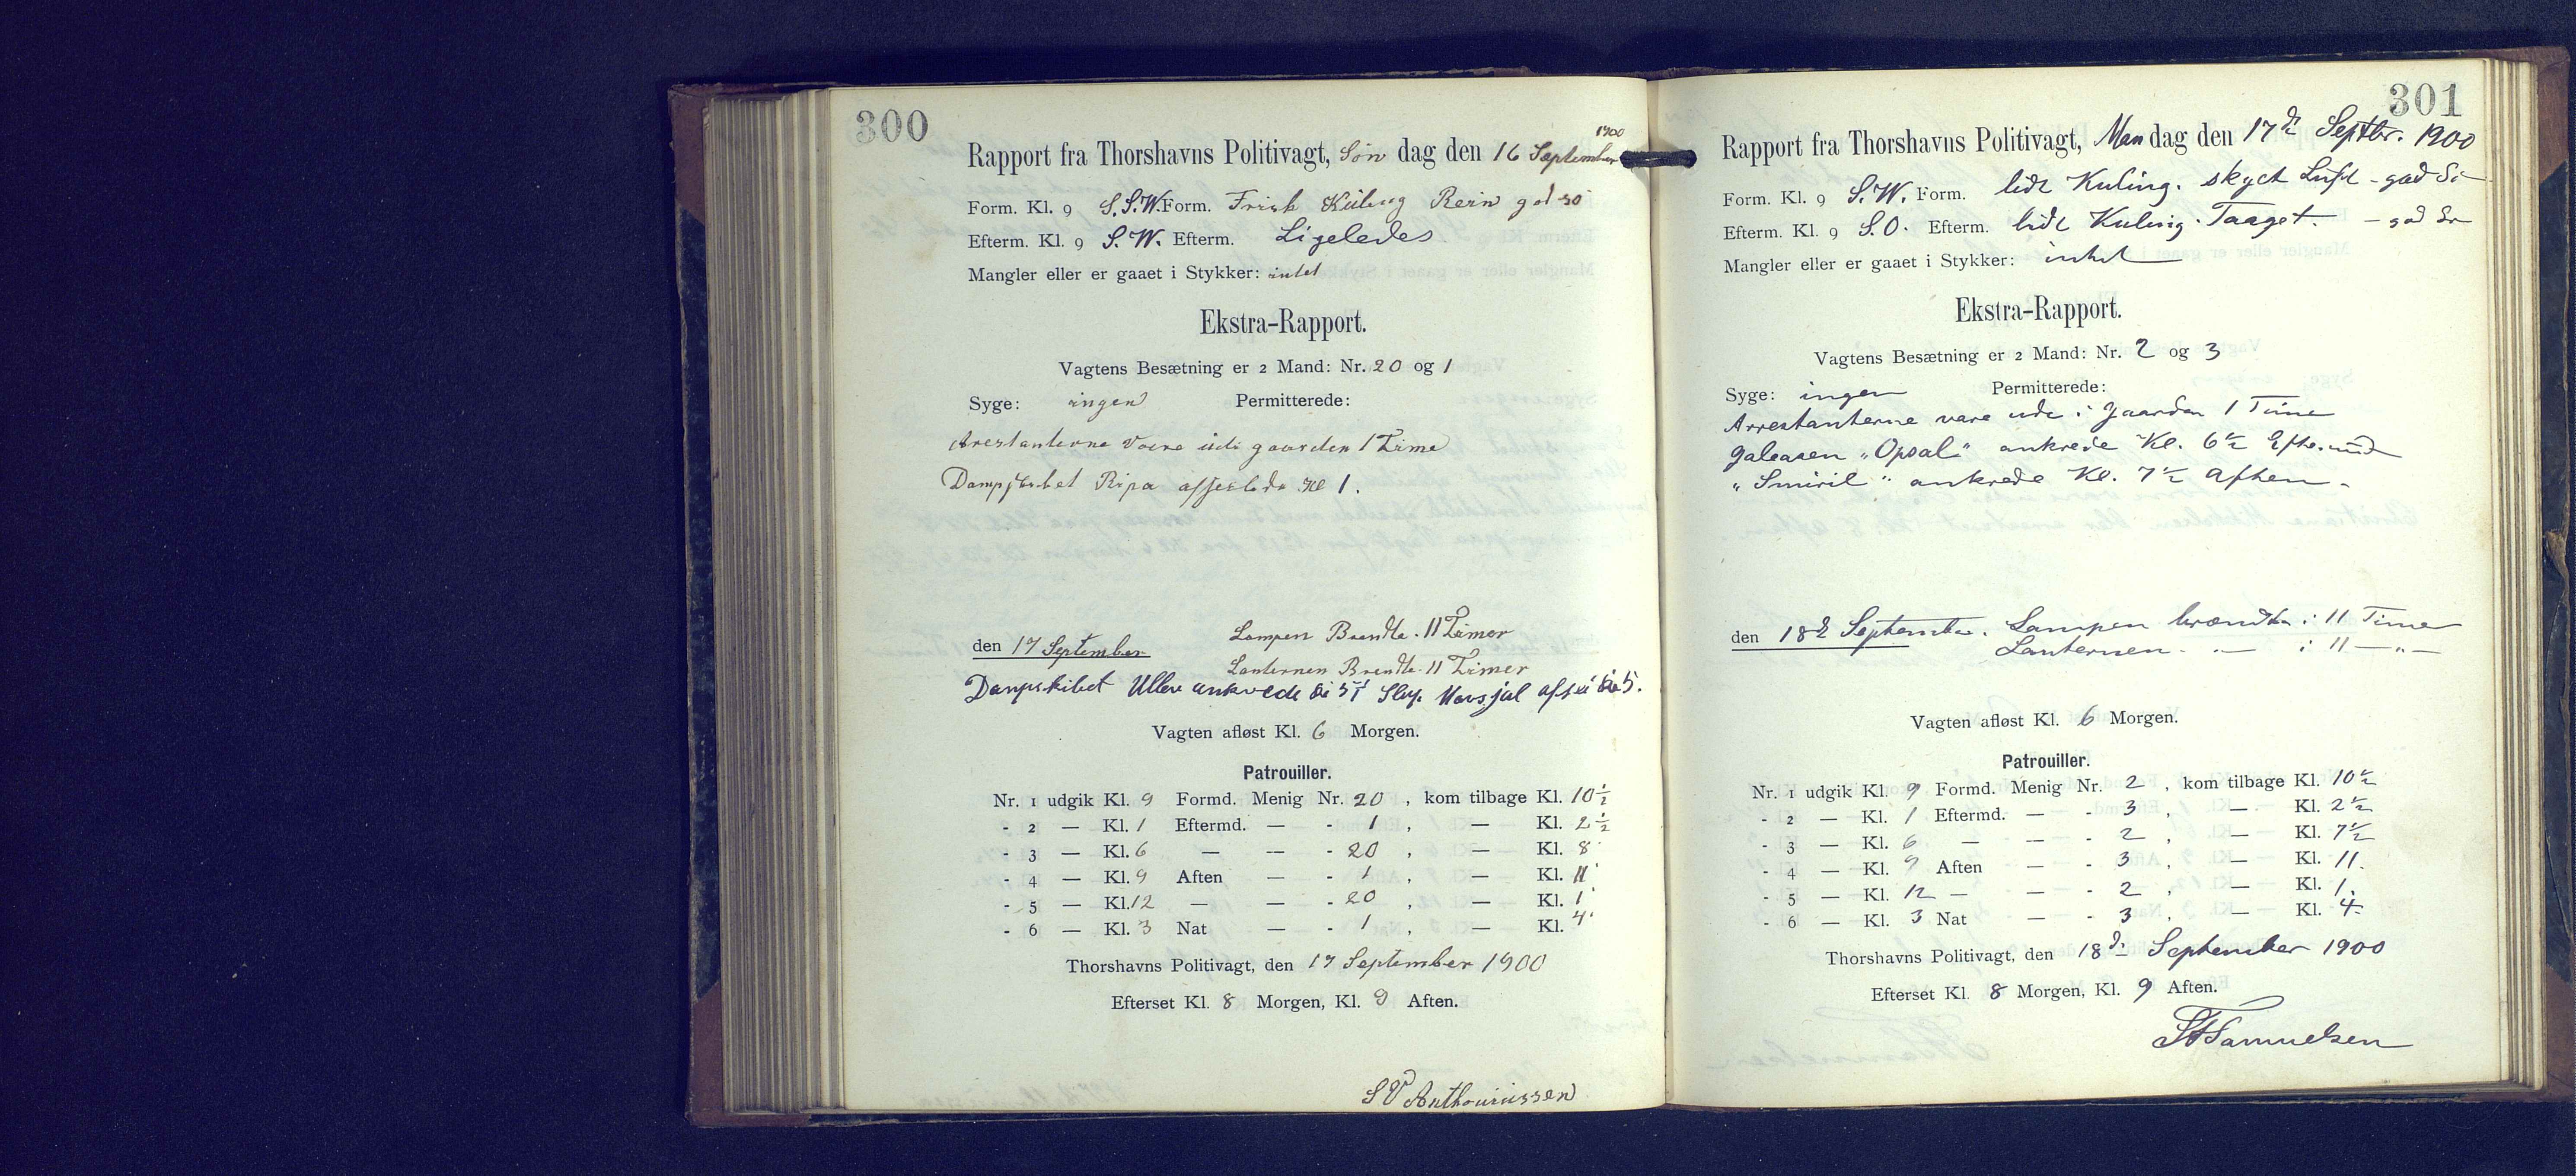 300
Rapport fra Thorshavns Politivagt, Søn dag den 16 September 1900
Form. Kl. 9 S.S.W. Form. Frisk Kúling Rein god sø
Efterm. Kl. 9 S.W. Efterm. Ligeledes
Mangler eller er gaaet i Stykker: intet
Ekstra-Rapport.
Vagtens Besætning er 2 Mand: Nr. 20 og 1
Syge: ingen Permitterede:
Arestanterne Vare údi gaarden 1 Time
Dampskibet Ripa afseilede Kl 1.
den 17 September Lampen Brendte. 11 Timer
Lanternen Brendte. 11 Timer
Dampskibet Uller ankrede Slup
Vagten afløst Kl. 6 Morgen.
Patrouiller.
Nr. 1 udgik Kl. 9 Formd. Menig Nr. 20 , kom tilbage Kl. 10 1/2
- 2 — Kl. 1 Eftermd. — - 1 , — Kl. 2 1/2
- 3 — Kl. 6 — — - 20 , — Kl. 8
- 4 — Kl. 9 Aften — - 1 , — Kl. 11
- 5 — Kl. 12 — — - 20 , — Kl. 1
- 6 — Kl. 3 Nat — - 1 , — Kl. 4
Thorshavns Politivagt, den 17 September 1900
Efterset Kl. 8 Morgen, Kl. 9 Aften.
301
Rapport fra Thorshavns Politivagt, Man dag den 17de Septbr. 1900
Form. Kl. 9 S.W. Form. lidt Kuling. skyet Luft - god Sø
Efterm. Kl. 9 S.O. Efterm. lidt Kuling. Taaget. - god Sø
Mangler eller er gaaet i Stykker: intet
Ekstra-Rapport.
Vagtens Besætning er 2 Mand: Nr. 2 og 3
Syge: ingen Permitterede:
Arrestanterne vare ude i Gaarden 1 Time
Galeasen „Opsal“ ankrede Kl. 6 1/2 Eftermd
„Smiril“ ankrede Kl. 7 1/2 Aften.
den 18de September. Lampen brændte i 11 Timer
Lanternen - „ — i 11 — „ —
Vagten afløst Kl. 6 Morgen.
Patrouiller.
Nr. 1 udgik Kl. 9 Formd. Menig Nr. 2 , kom tilbage Kl. 10 1/2
- 2 — Kl. 1 Eftermd. — - 3 , — Kl. 2 1/2
- 3 — Kl. 6 — — - 2 , — Kl. 7 1/2
- 4 — Kl. 9 Aften — - 3 , — Kl. 11.
- 5 — Kl. 12 — — - 2 , — Kl. 1.
- 6 — Kl. 3 Nat — - 3 , — Kl. 4
Thorshavns Politivagt, den 18de September 1900
Efterset Kl. 8 Morgen, Kl. 9 Aften.
Samuelsen